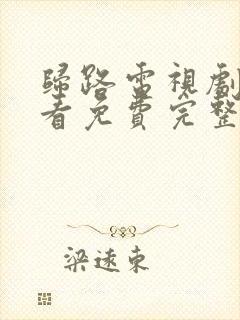 歸路電視劇
看免費完整
梁遠東